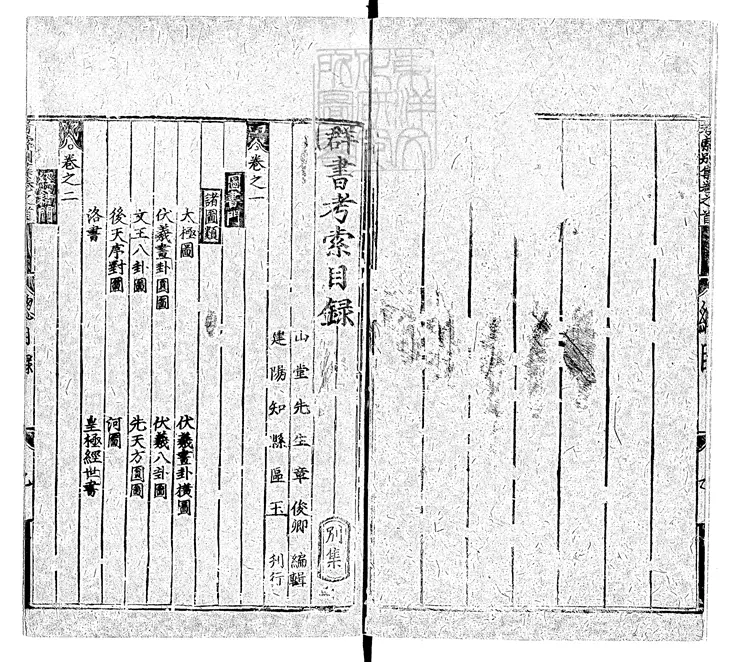 群書考索目録
別集
山堂先生章俊卿編輯
建陽知縣區玉刊行
卷之一
圖書門
諸圖類
太極圖
伏羲畫卦橫圖
伏羲畫卦圓圖
伏羲八卦圖
文王八卦圖
先天方圓圖
後天序對圖
河圖
洛書
皇極經世書
卷之二
總目錄